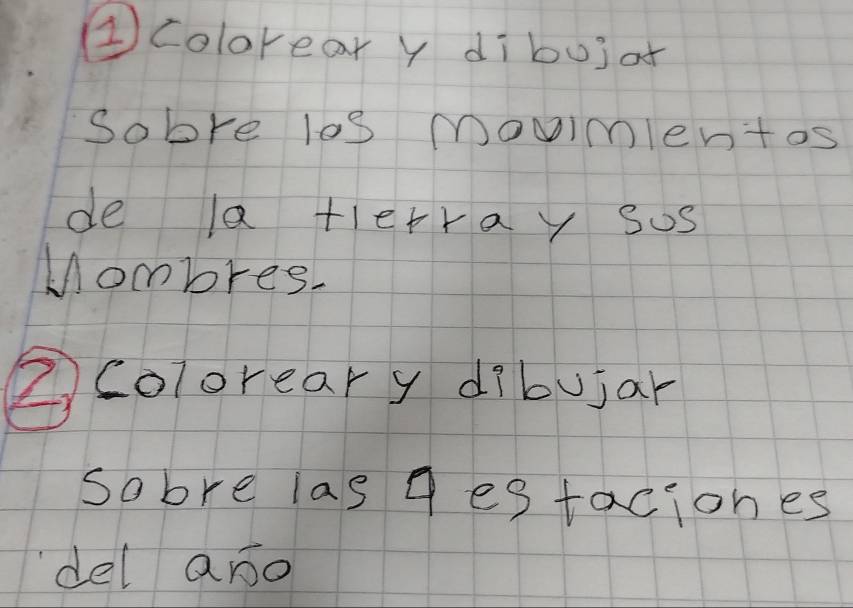 1 Colorear y dibujar
Sobre los movimientos
de la tierra y sus
Nombres.
2 Colorear y dibujar
Sobre las 4 estaciones
del año